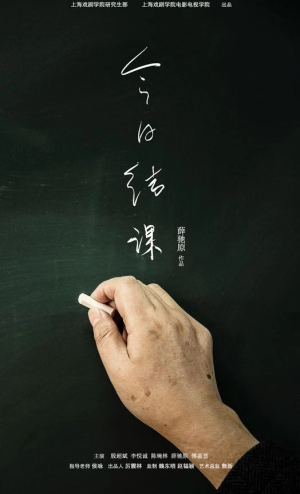 上海戏剧学院研究生部 上海戏剧学院电影电视学院 出品
今日结课
薛驰原 作品
主演 殷超斌 李悦诚 陈琬林 薛驰原 傅嘉慧
指导老师 侯咏 出品人 厉震林 监制 魏东明 赵韫颖 艺术总监